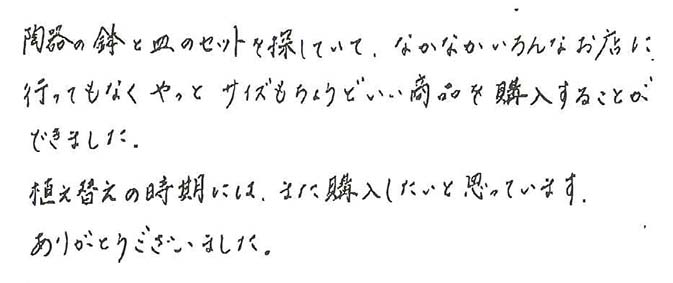 陶器の鉢と皿のセットを探していて、なかなかいろんなお店に
行ってもなくやっとサイズもちょうどいい商品を購入することが
できました。
植え替えの時期には、また購入したいと思っています。
ありがとうございました。